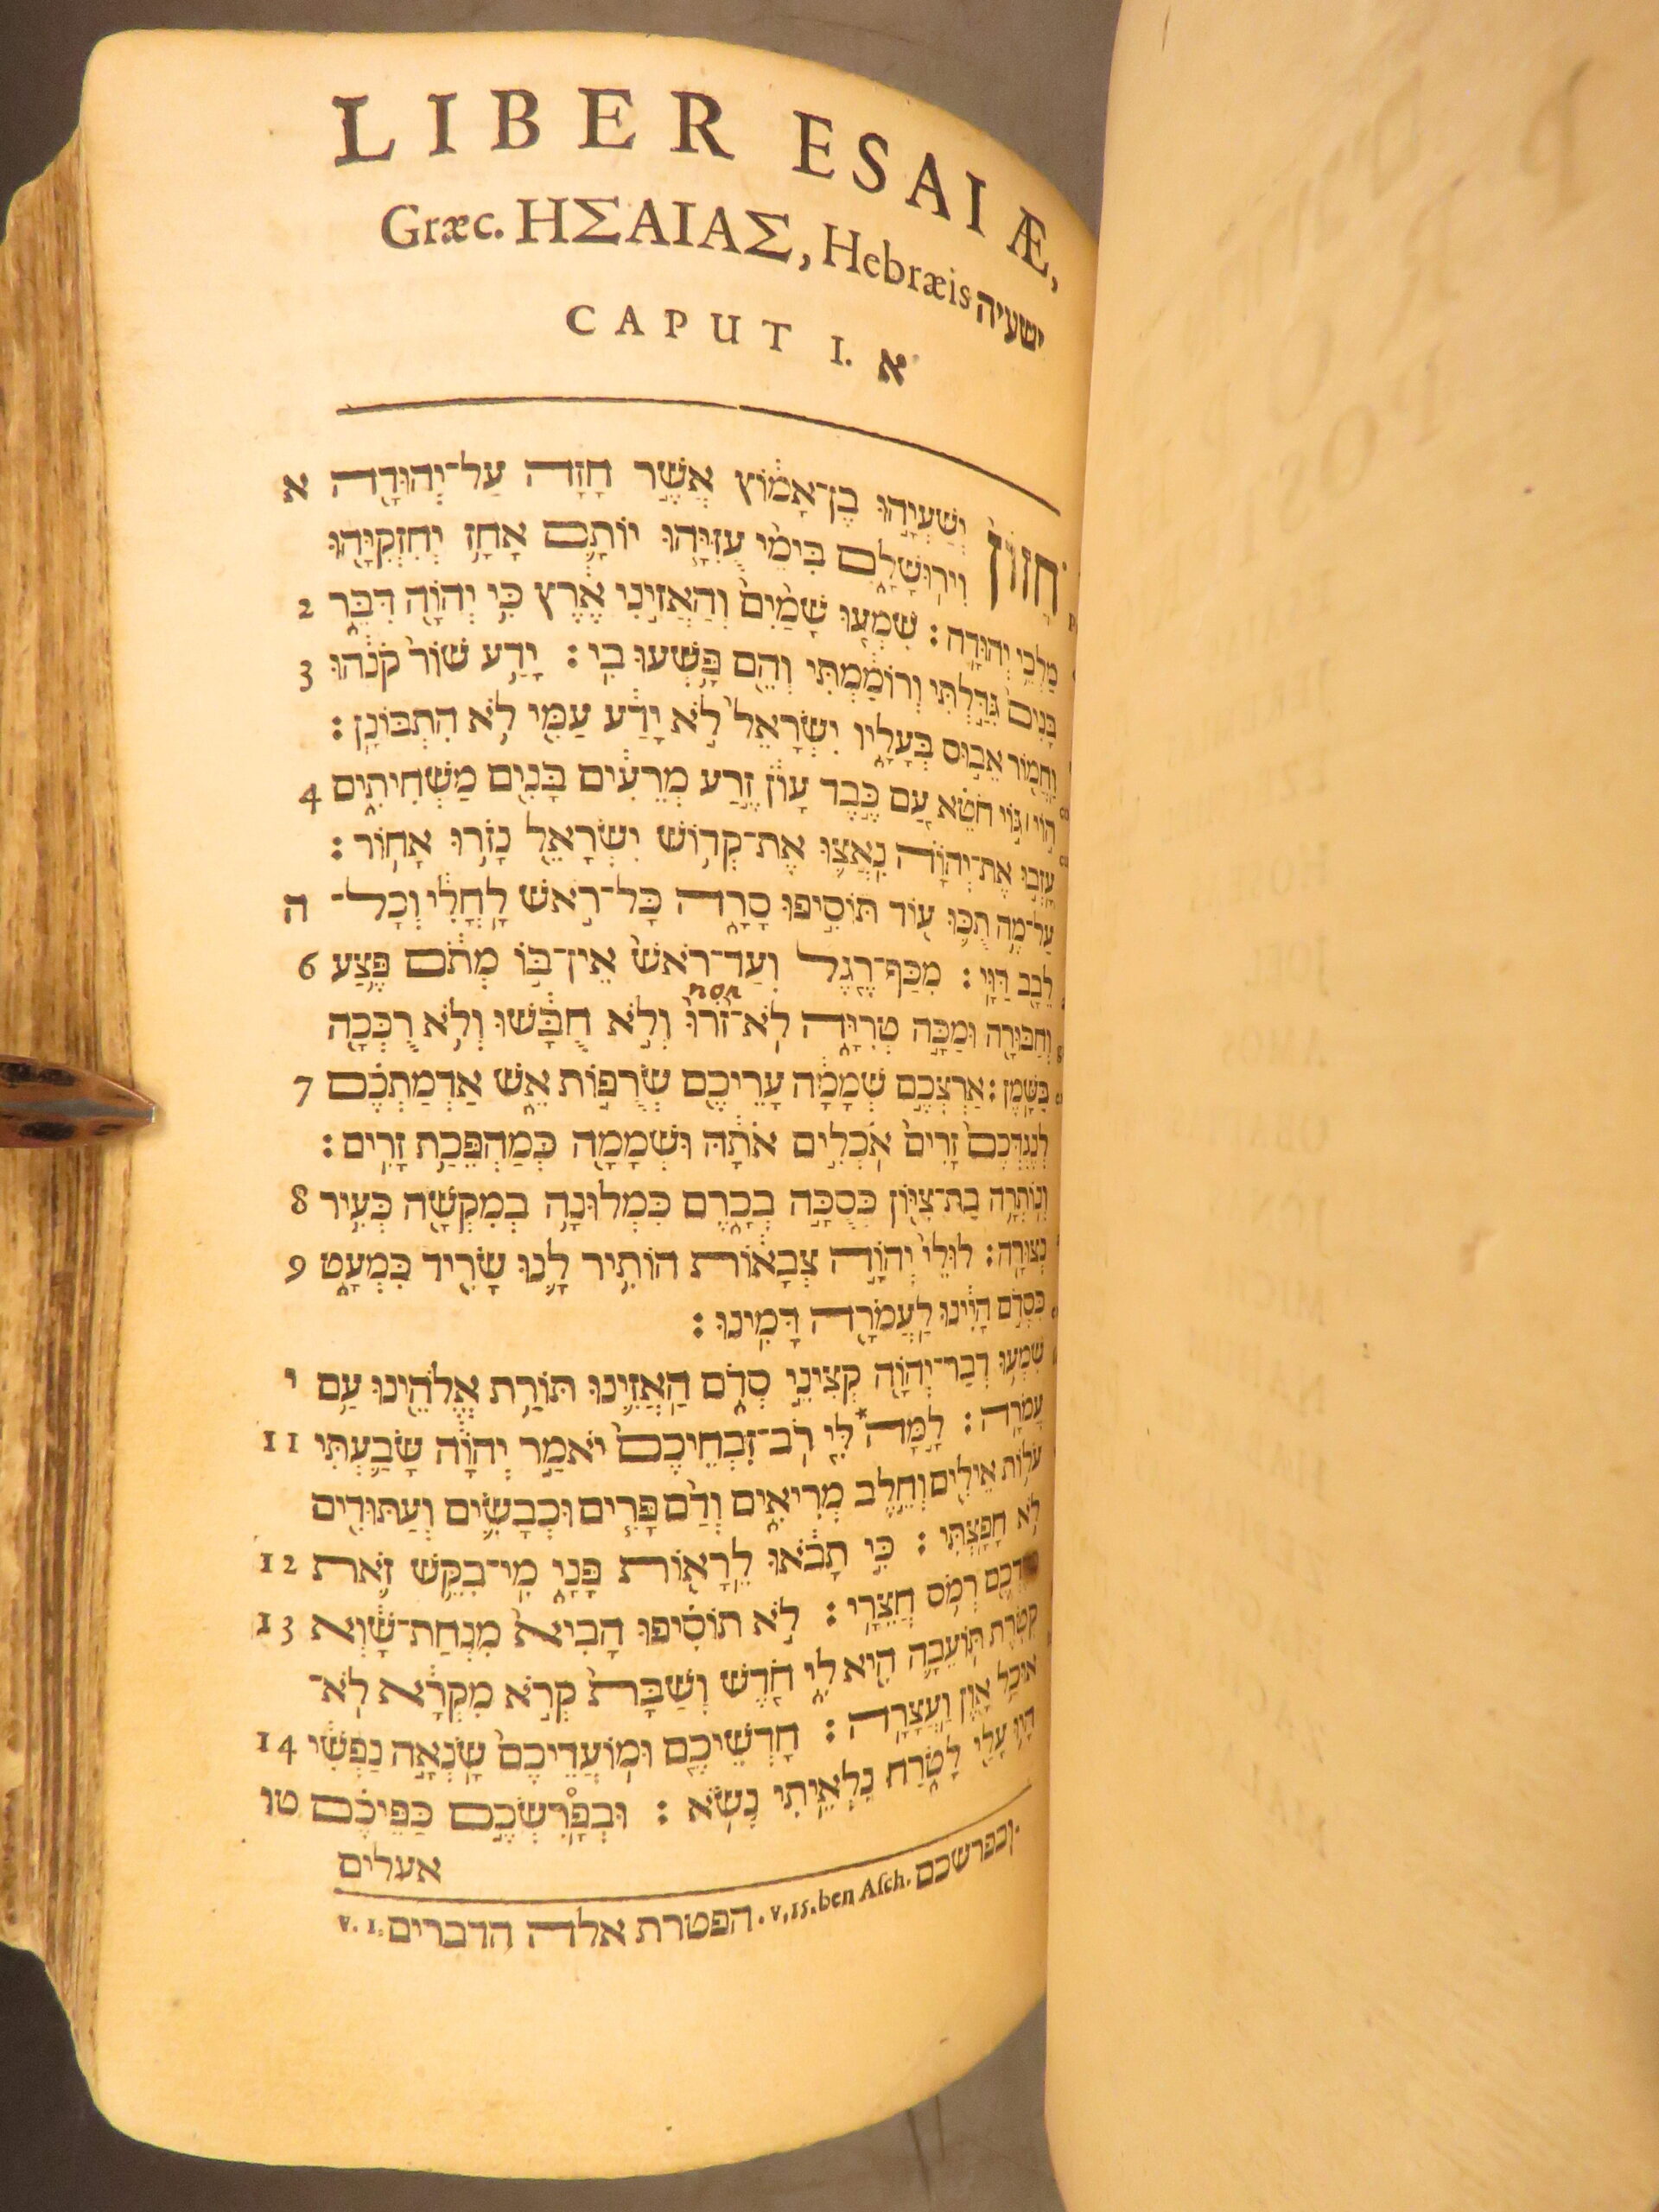 LIBER ESAIÆ,
Græc. ΗΣΑΙΑΣ, Hebræis ישעיה
CAPUT I. א
חֲזוֹן֙ יְשַׁעְיָ֣הוּ בֶן־אָמ֔וֹץ אֲשֶׁ֣ר חָזָ֔ה עַל־יְהוּדָ֖ה א
וִירֽוּשָׁלָ֑͏ִם בִּימֵ֨י עֻזִיָּ֧הוּ יוֹתָ֛ם אָחָ֥ז יְחִזְקִיָּ֖הוּ
מַלְכֵ֥י יְהוּדָֽה׃ שִׁמְע֤וּ שָׁמַ֙יִם֙ וְהַאֲזִ֣ינִי אֶ֔רֶץ כִּ֥י יְהוָֹ֖ה דִּבֵּ֑ר 2
בָּנִים֙ גִּדַּ֣לְתִּי וְרוֹמַ֔מְתִּי וְהֵ֖ם פָּ֥שְׁעוּ בִֽי׃ יָדַ֥ע שׁוֹר֙ קֹנֵ֔הוּ 3
וַחֲמ֖וֹר אֵב֣וּס בְּעָלָ֑יו יִשְׂרָאֵל֙ לֹ֣א יָדַ֔ע עַמִּ֖י לֹ֥א הִתְבּוֹנָֽן׃
ה֣וֹי׀ גּ֣וֹי חֹטֵ֗א עַ֚ם כֶּ֣בֶד עָוֹ֔ן זֶ֣רַע מְרֵעִ֔ים בָּנִ֖ים מַשְׁחִיתִ֑ים 4
עָזְב֣וּ אֶת־יְהוָֹ֗ה נִֽאֲצ֛וּ אֶת־קְד֥וֹשׁ יִשְׂרָאֵ֖ל נָזֹ֥רוּ אָחֽוֹר׃
עַל־מֶ֥ה תֻכּ֛וּ ע֖וֹד תּוֹסִ֣יפוּ סָרָ֑ה כָּל־רֹ֣אשׁ לָחֳלִ֔י וְכָל־ ה
לֵבָ֖ב דַּוָּֽי׃ מִכַּף־רֶ֤גֶל וְעַד־רֹאשׁ֙ אֵֽין־בּ֣וֹ מְתֹ֔ם פֶּ֥צַע 6
non
וְחַבּוּרָ֖ה וּמַכָּ֣ה טְרִיָּ֑ה לֹא־זֹ֙רוּ֙ וְלֹ֣א חֻבָּ֔שׁוּ וְלֹ֥א רֻכְּכָ֖ה
בַּשָּֽׁמֶן׃ אַרְצְכֶ֣ם שְׁמָמָ֔ה עָרֵיכֶ֖ם שְׂרֻפ֣וֹת אֵ֑שׁ אַדְמַתְכֶ֗ם 7
לְנֶגְדְּכֶם֙ זָרִים֙ אֹכְלִ֣ים אֹתָ֔הּ וּשְׁמָמָ֖ה כְּמַהְפֵּכַ֥ת זָרִֽים׃
וְנוֹתְרָ֥ה בַת־צִיּ֖וֹן כְּסֻכָּ֣ה בְכָ֑רֶם כִּמְלוּנָ֥ה בְמִקְשָׁ֖ה כְּעִ֥יר 8
נְצוּרָֽה׃ לוּלֵי֙ יְהוָֹ֣ה צְבָא֔וֹת הוֹתִ֥יר לָ֛נוּ שָׂרִ֖יד כִּמְעָ֑ט 9
כִּסְדֹ֣ם הָיִ֔ינוּ לַעֲמֹרָ֖ה דָּמִֽינוּ׃
שִׁמְע֥וּ דְבַר־יְהוָֹ֖ה קְצִינֵ֣י סְדֹ֑ם הַאֲזִ֛ינוּ תּוֹרַ֥ת אֱלֹהֵ֖ינוּ עַ֥ם י
עֲמֹרָֽה׃ לָ֣מָּה* לִּ֤י רֹב־זִבְחֵיכֶם֙ יֹאמַ֣ר יְהוָֹ֔ה שָׂבַ֛עְתִּי 11
עֹל֥וֹת אֵילִ֖ים וְחֵ֣לֶב מְרִיאִ֑ים וְדַ֨ם פָּרִ֧ים וּכְבָשִׂ֛ים וְעַתּוּדִ֖ים
לֹ֥א חָפָֽצְתִּי׃ כִּ֣י תָבֹ֔אוּ לֵרָא֖וֹת פָּנָ֑י מִי־בִקֵּ֥שׁ זֹ֛את 12
רְמֹ֥ס חֲצֵרָֽי׃ לֹ֣א תוֹסִ֗יפוּ הָבִיא֙ מִנְחַת־שָׁ֔וְא 13
קְטֹ֧רֶת תּוֹעֵבָ֛ה הִ֖יא לִ֑י חֹ֤דֶשׁ וְשַׁבָּת֙ קְרֹ֣א מִקְרָ֔א לֹא־
אוּכַ֥ל אָ֖וֶן וַעֲצָרָֽה׃ חָדְשֵׁיכֶ֤ם וּמֽוֹעֲדֵיכֶם֙ שָׂנְאָ֣ה נַפְשִׁ֔י 14
הָי֥וּ עָלַ֖י לָטֹ֑רַח נִלְאֵ֖יתִי נְשֹֽׂא׃ וּבְפָרִשְׂכֶ֣ם כַּפֵּיכֶ֗ם טו
אעלים
v. 1. הפטרת אלה הדברים. v, 15. ben Asch. ובפרשכם.